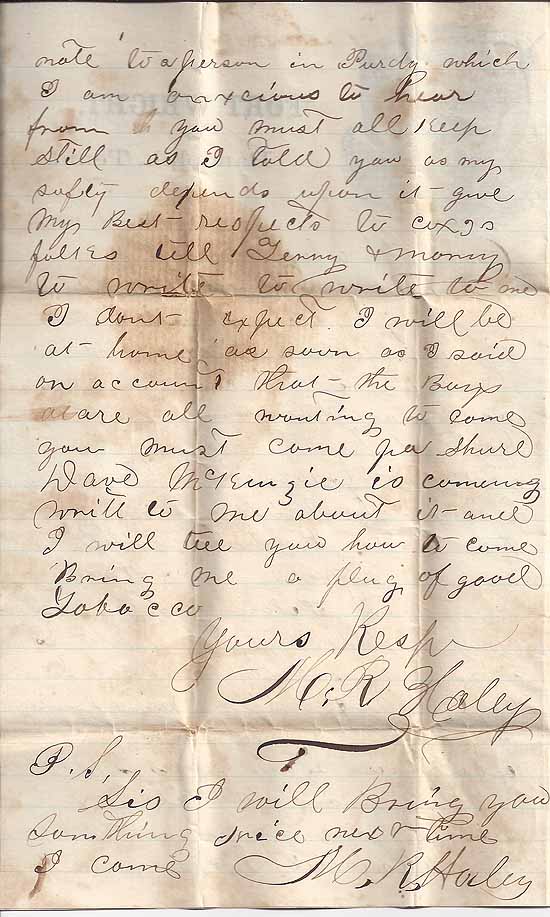 note to a person in Purdy which
I am anxcious to hear
from you must all keep
still as I told you as my
safty depends upon it give
My Best respects to coxs
folkes tell Jenny &
to write to write to me
I dont expect I will be
at home as soon as I said
on account that the Boys
are all wanting to come
you must come pa shure
Dave McKenzie is coming
write to me about it and
I will tel you how to come
Bring me a plug of good
Tobacco
Yours Resp
M. R Haley
P. S.
Sis I will Bring you
Somthing nice next time
I come M. R. Haley